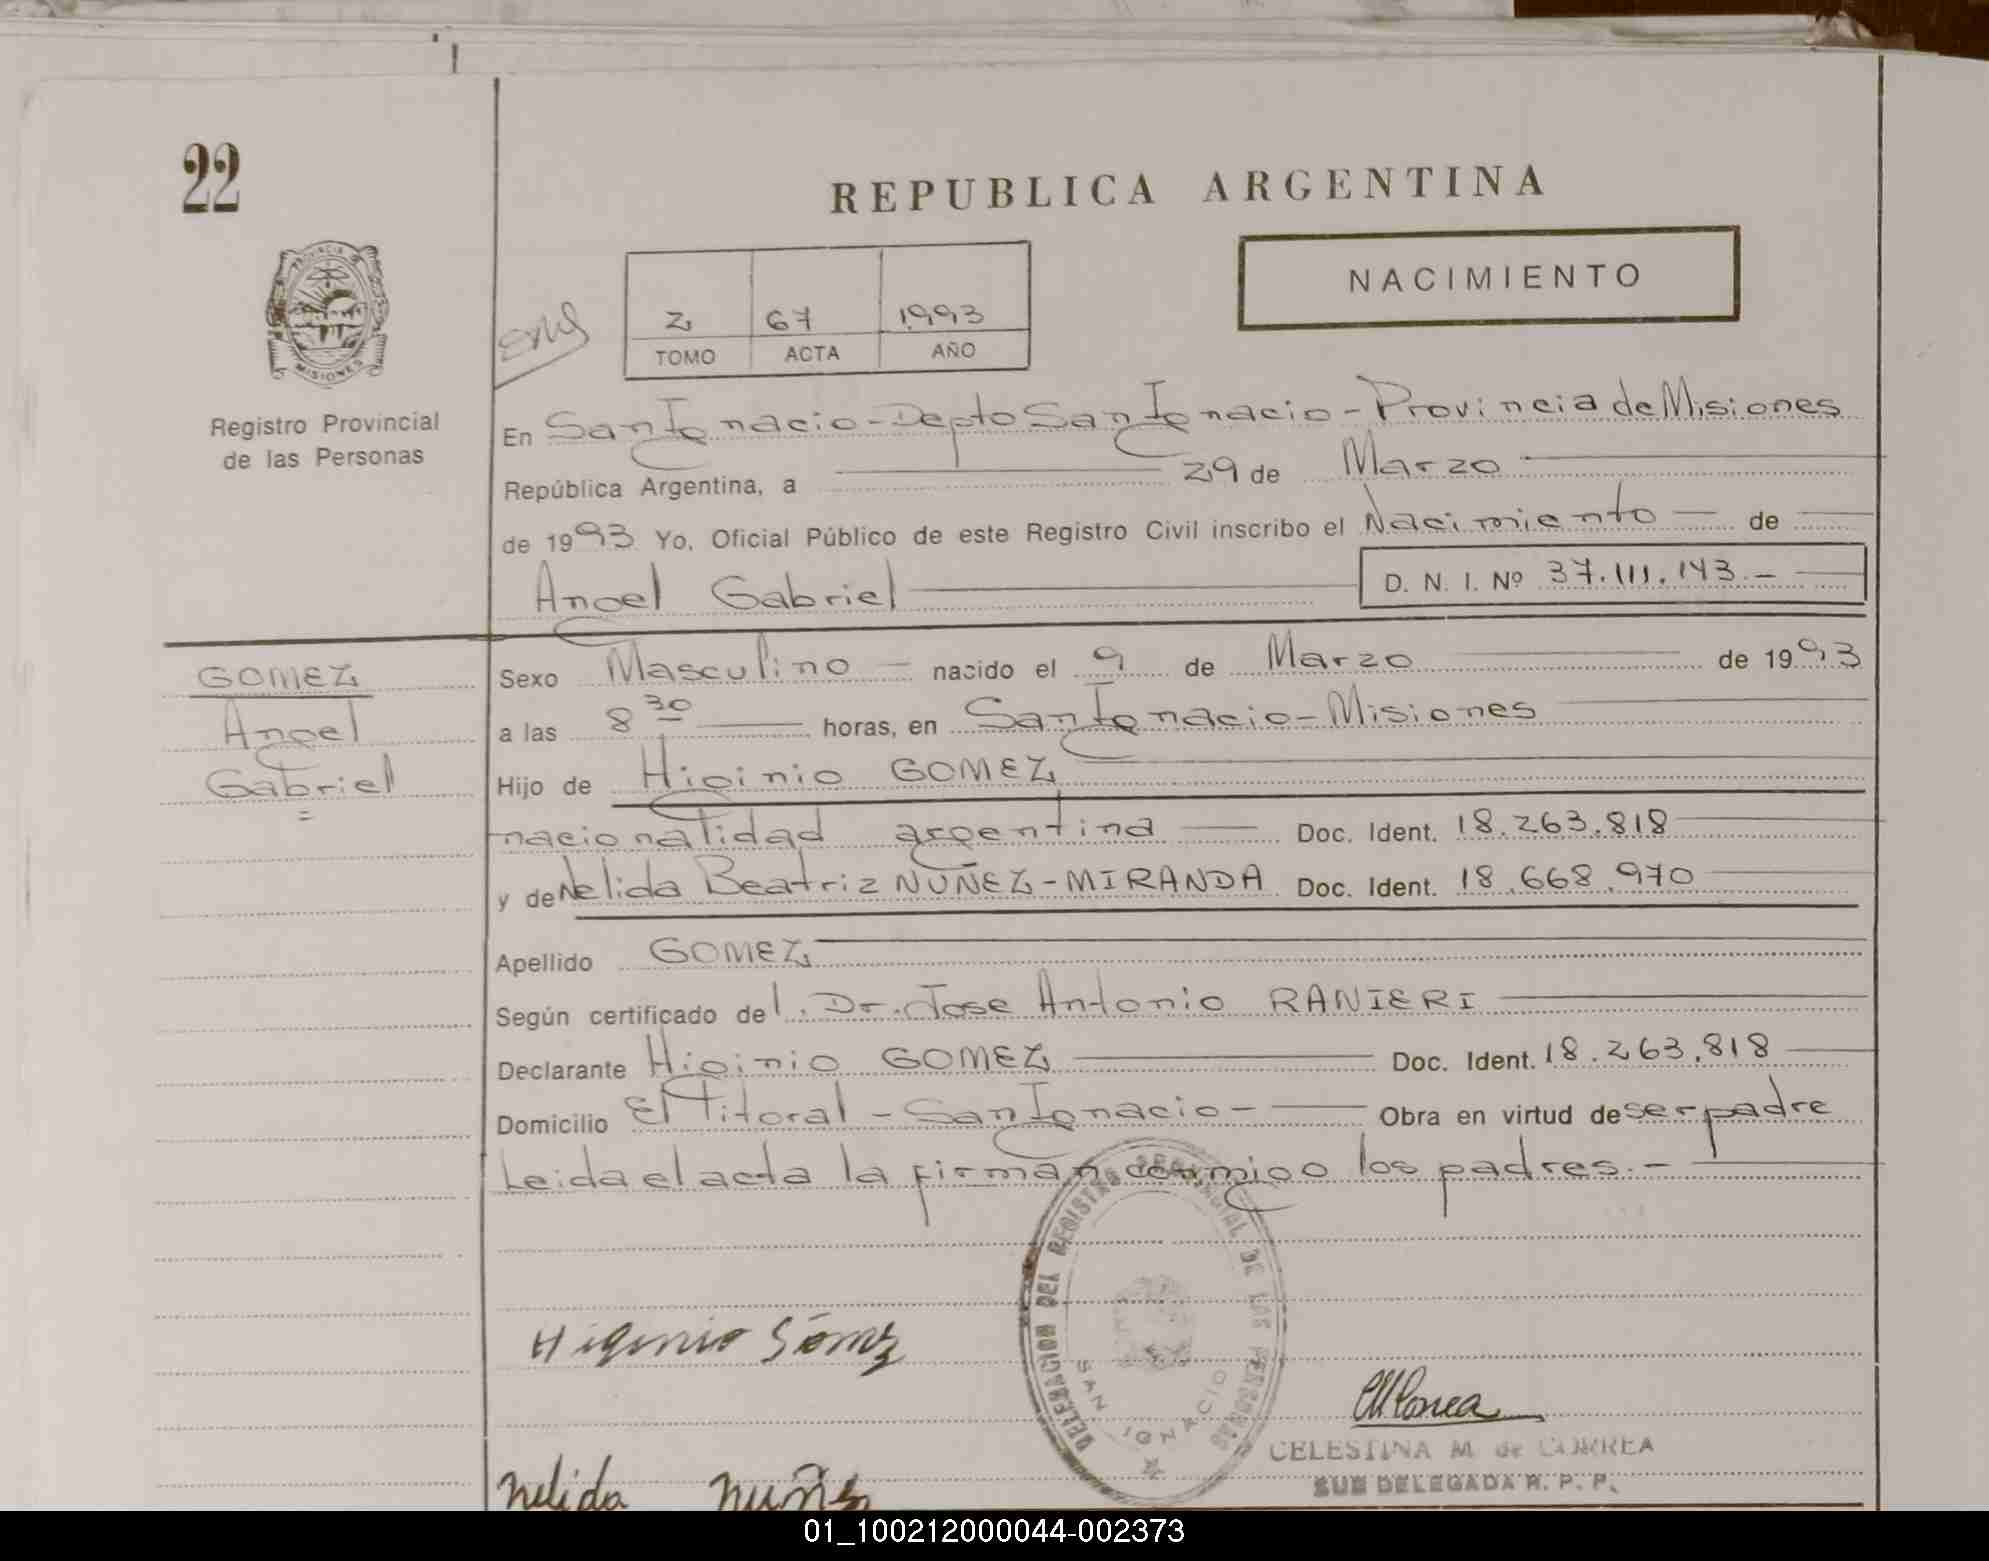 22
REPUBLICA ARGENTINA
NACIMIENTO
PROVINCIA DE
MISIONES
Registro Provincial
de las Personas
2 67 1993
TOMO ACTA AÑO
En San Ignacio - Depto San Ignacio - Provincia de Misiones
República Argentina, a 29 de Marzo
de 1993 Yo, Oficial Público de este Registro Civil inscribo el Nacimiento — de
Angel Gabriel D. N. I. Nº 37.111.143.-
GOMEZ
Angel
Gabriel
Sexo Masculino — nacido el 9 de Marzo de 1993
a las 8 30 horas, en San Ignacio - Misiones
Hijo de Higinio GOMEZ
nacionalidad argentina — Doc. Ident. 18.263.818
y de Nelida Beatriz NUÑEZ - MIRANDA Doc. Ident. 18.668.970
Apellido GOMEZ
Según certificado del Dr. Jose Antonio RANIERI
Declarante Higinio GOMEZ Doc. Ident. 18.263.818
Domicilio El Litoral - San Ignacio - Obra en virtud de ser padre
Leida el acta la firman conmigo los padres.-
Higinio Gómez
DELEGACION DEL REGISTRO PROVINCIAL DE LAS PERSONAS
SAN IGNACIO
CELESTINA M. de CORREA
SUB DELEGADA R. P. P.
Nelida Nuñez
01_100212000044-002373